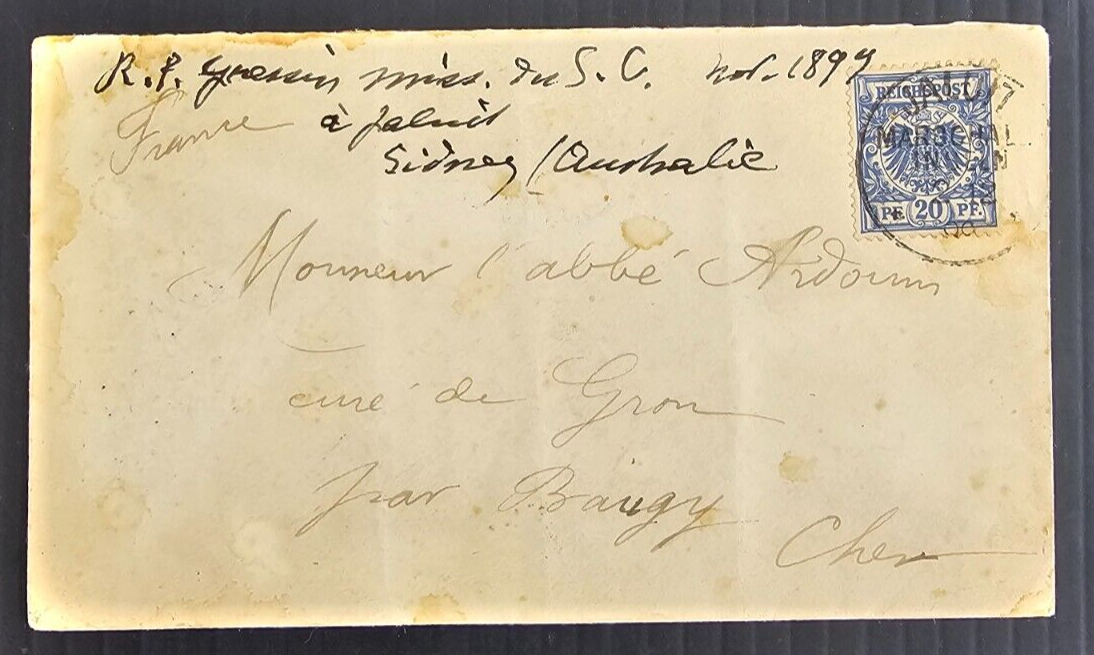 R. P. Gressin miss. du S. C. nov. 1899
France à Jaluit
Sidney (Australie
REICHSPOST
MARSCHALL
INSELN
20 PF.
Monsieur l'abbé Ardouin
curé de Gron
par Baugy
Cher